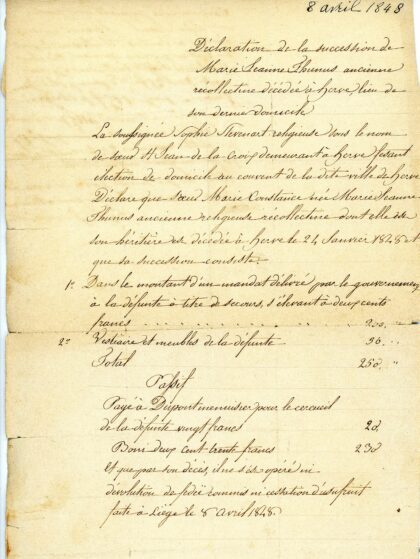 8 avril 1848
Déclaration de la succession de
Marie Jeanne Thunus ancienne
récollectine décédée à Herve, lieu de
son dernier domicile
La soussignée Sophie Thevenart religieuse sous le nom
de sœur St Jean de la Croix demeurant à Herve fesant
élection de domicile au couvent de la dite ville de Herve
Déclare que sœur Marie Constance née Marie Jeanne
Thunus ancienne religieuse récollectine dont elle est
son héritière est décédée à Herve le 24 Janvier 1848 et
que sa succession consiste
1º Dans le montant d'un mandat délivré par le gouvernement
à la défunte à titre de secours, s'élevant à deux cents
francs . . . . . . 200 "
2º Vestiaire et meubles de la défunte 50 "
Total 250 "
Passif
Payé à Dupont menuisier pour le cercueil
de la défunte vingt francs 20
Boni deux cent trente francs 230
Et que par son décès, il ne s'est opéré ni
dévolution de fidéi commis ni cessation d'usufruit
faite à Liège le 8 Avril 1848